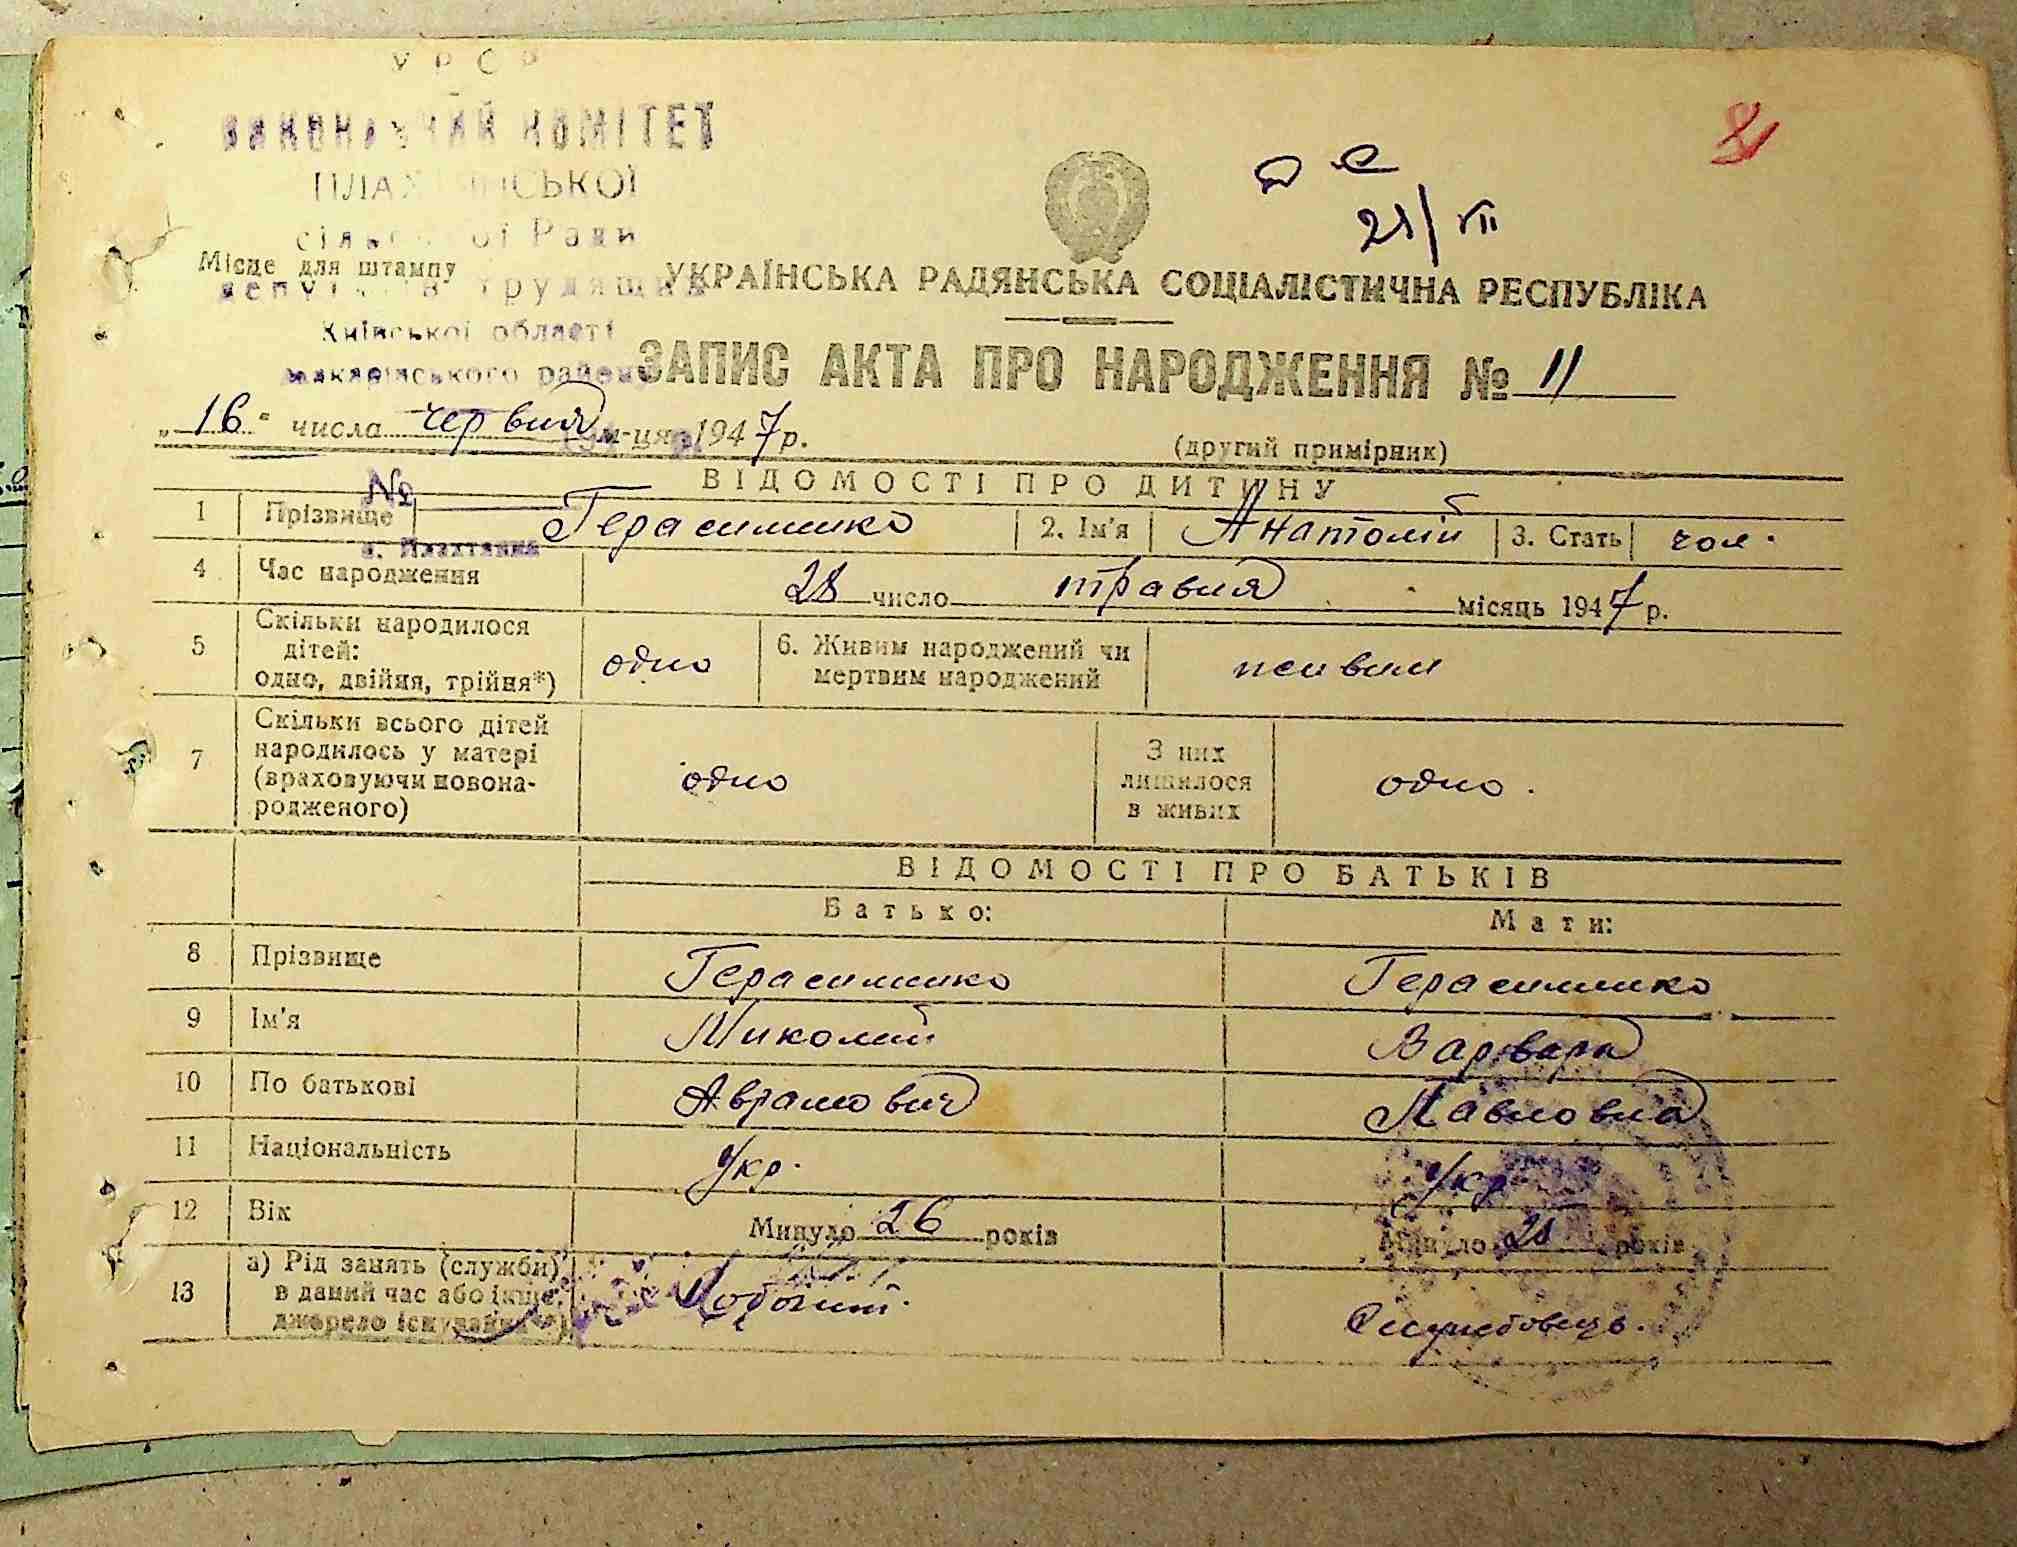 УРСР
ВИКОНАВЧИЙ КОМІТЕТ
ПЛАХТЯНСЬКОЇ
сільської Ради
Місце для штампу
депутатів трудящих
Київської області
Макарівського району
21/VII
УКРАЇНСЬКА РАДЯНСЬКА СОЦІАЛІСТИЧНА РЕСПУБЛІКА
ЗАПИС АКТА ПРО НАРОДЖЕННЯ № 11
„16" числа червня м-ця 1947 р.
(другий примірник)
№
ВІДОМОСТІ ПРО ДИТИНУ
1 Прізвище Герасименко 2. Ім'я Анатолій 3. Стать чол.
с. Плахтянка
4 Час народження 28 число травня місяць 1947 р.
5 Скільки народилося дітей: одно, двійня, трійня*) одно 6. Живим народжений чи мертвим народжений живим
7 Скільки всього дітей народилось у матері (враховуючи новона-родженого) одно З них лишилося в живих одно.
ВІДОМОСТІ ПРО БАТЬКІВ
Батько: Мати:
8 Прізвище Герасименко Герасименко
9 Ім'я Миколай Варвара
10 По батькові Аврамович Павловна
11 Національність Укр. Укр.
12 Вік Минуло 26 років Минуло років
13 а) Рід занять (служби) в даний час або інше джерело існування**) Робочий. Службовець.